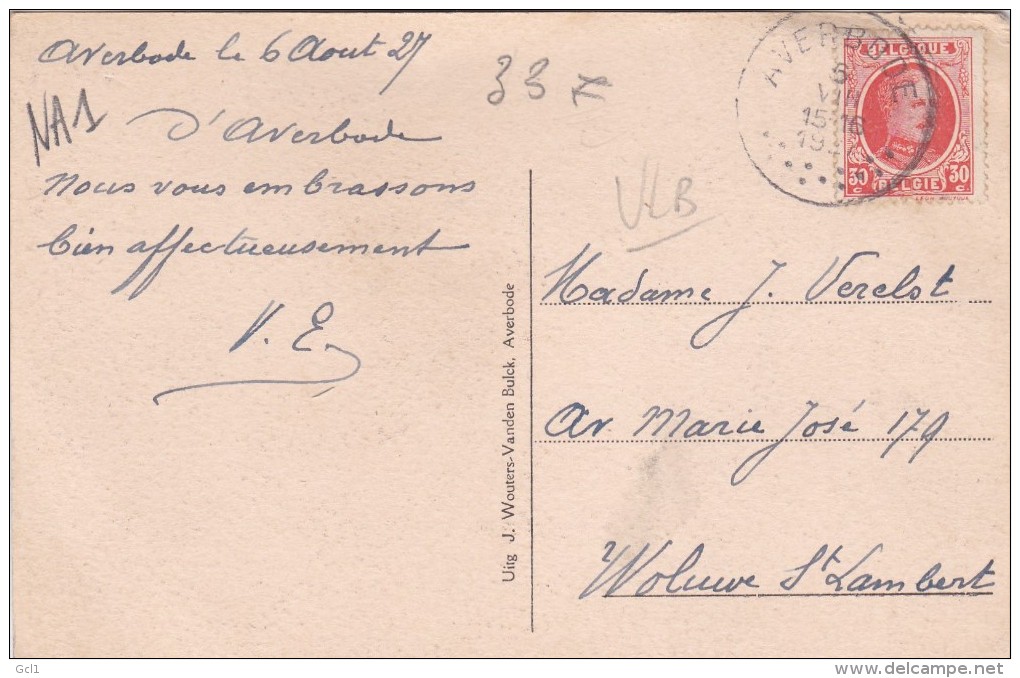 Averbode le 6 Aout 27
NA1
D'Averbode
nous vous embrassons
bien affectueusement
V. E.
33
VLB
AVERBODE
6
VIII
15-16
19
BELGIQUE
30 30
c c
BELGIE
Uitg J. Wouters-Vanden Bulck, Averbode
Madame J. Verelst
av Marie José 179
Woluwe St Lambert
Gcl1
www.delcampe.net